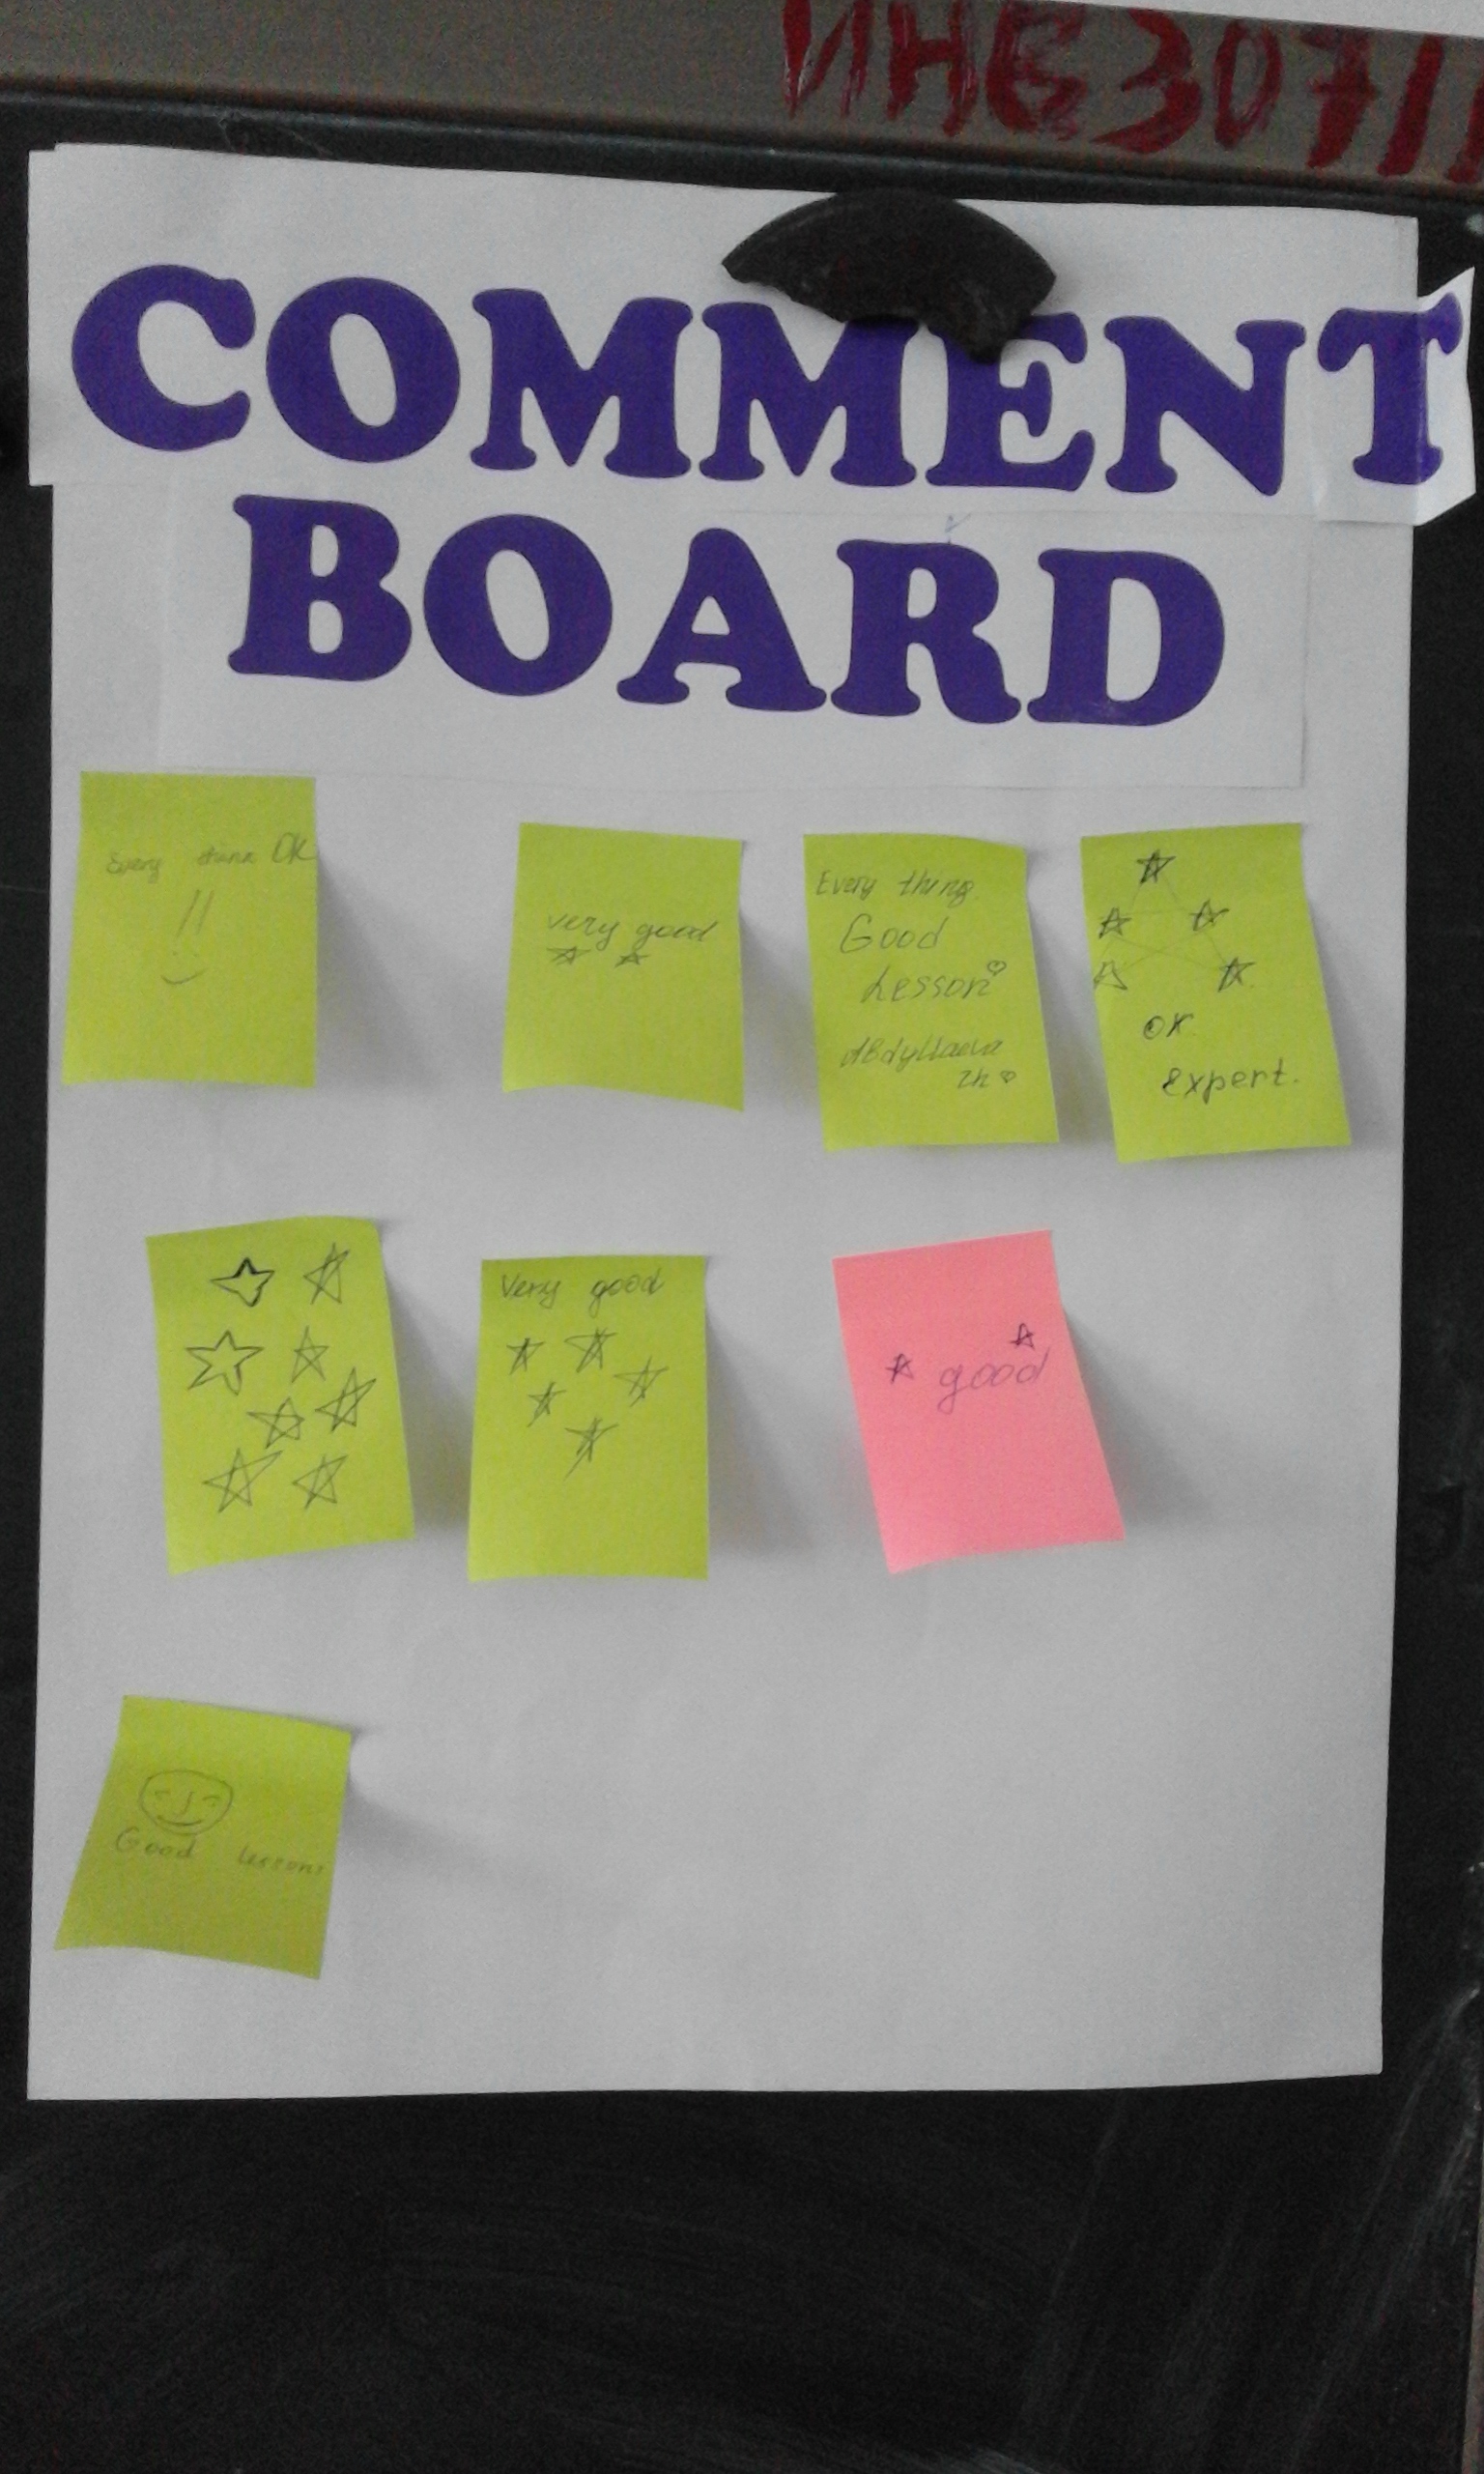 ИНВ3071
COMMENT
BOARD
Every think OK
!!
very good
Every thing
Good
Lesson
Abdyllaeva
Zh
OK.
Expert.
Very good
good
Good Lesson